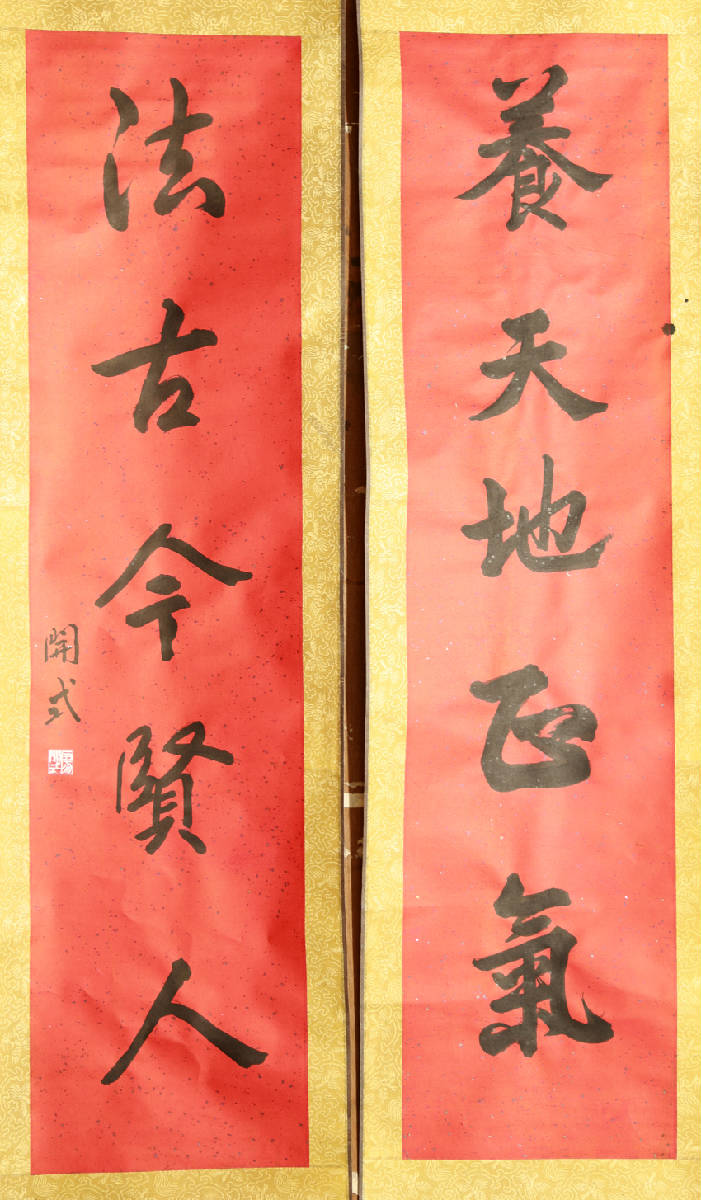 養天地正氣
法古今賢人
開式